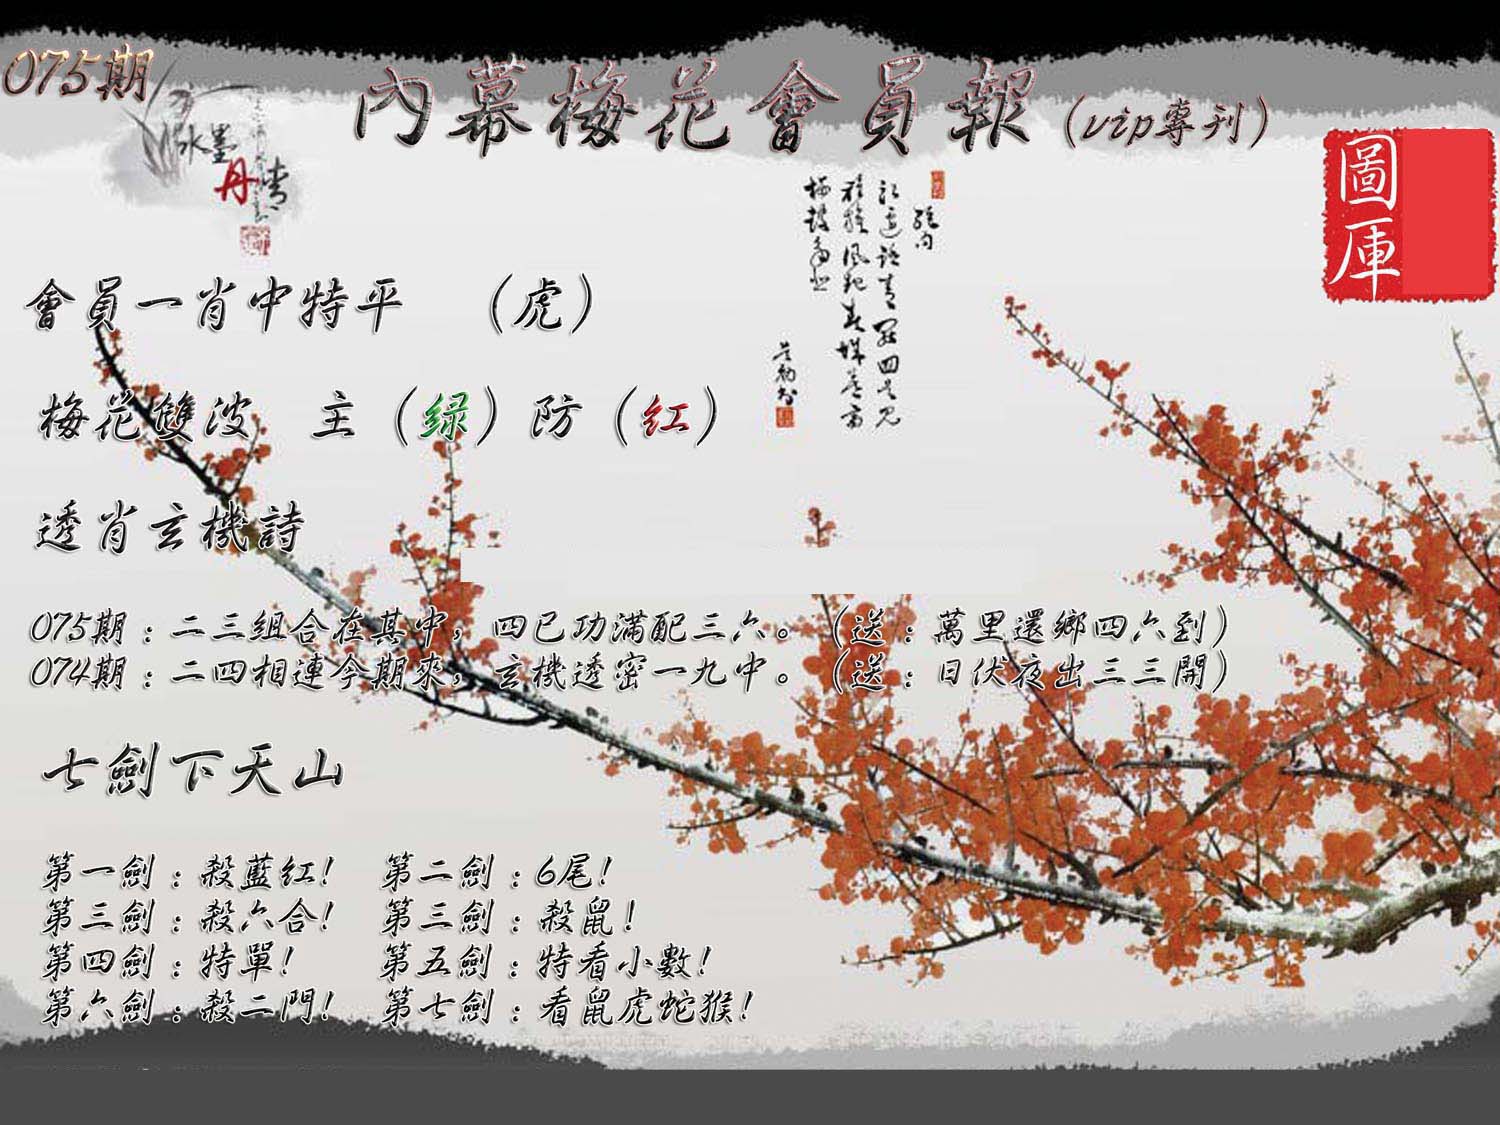 075期
內幕梅花會員報（vip專刊）
水墨
丹青
圖庫
會員一肖中特平　（虎）
梅花雙波　主（绿）防（红）
透肖玄機詩
075期：二三組合在其中，四已功滿配三六。（送：萬里還鄉四六到）
074期：二四相連今期來，玄機透密一九中。（送：日伏夜出三三開）
七劍下天山
第一劍：殺藍红！　第二劍：6尾！
第三劍：殺六合！　第三劍：殺鼠！
第四劍：特單！　第五劍：特看小數！
第六劍：殺二門！　第七劍：看鼠虎蛇猴！